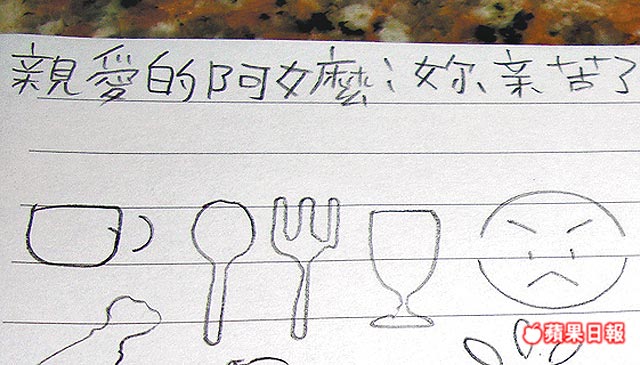 親愛的阿嬤：妳亲苦了
蘋果日報